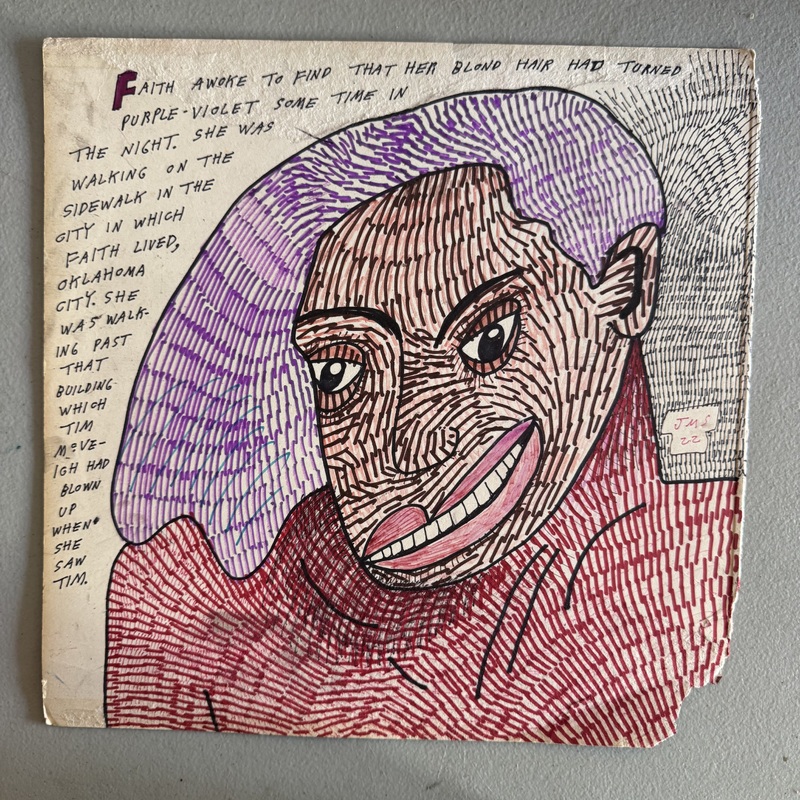 FAITH AWOKE TO FIND THAT HER BLOND HAIR HAD TURNED
PURPLE-VIOLET SOME TIME IN
THE NIGHT. SHE WAS
WALKING ON THE
SIDEWALK IN THE
CITY IN WHICH
FAITH LIVED,
OKLAHOMA
CITY. SHE
WAS WALK-
ING PAST
THAT
BUILDING
WHICH
TIM
McVE-
IGH HAD
BLOWN
UP
WHEN
SHE
SAW
TIM.
JMS
22